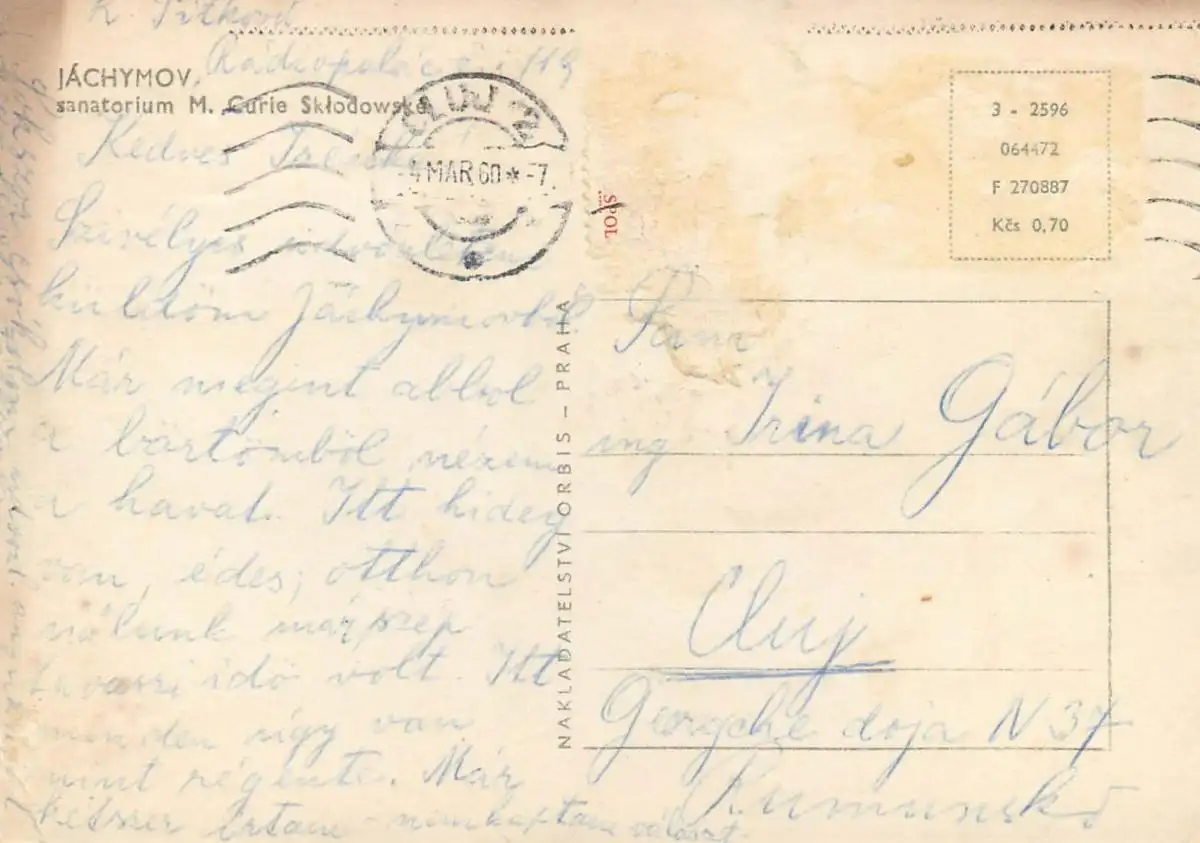 JÁCHYMOV,
sanatorium M. Curie Skłodowské
CLUJ 2
-4 MAR 60 *-7
Kedves
Szivélyes
küldöm Jáchymovból.
Már megint abból
a börtömböl nézem
a havat. Itt hideg
van, édes, otthon
nálunk már szép
tavaszi idö volt. Itt
minden úgy van
mint régente. Már
kétszer irtam nem kaptam választ.
NAKLADATELSTVÍ ORBIS – PRAHA
SPOL
3 - 2596
064472
F 270887
Kčs 0,70
ing Irina Gábor
Cluj
doja N 37
Rumunsko